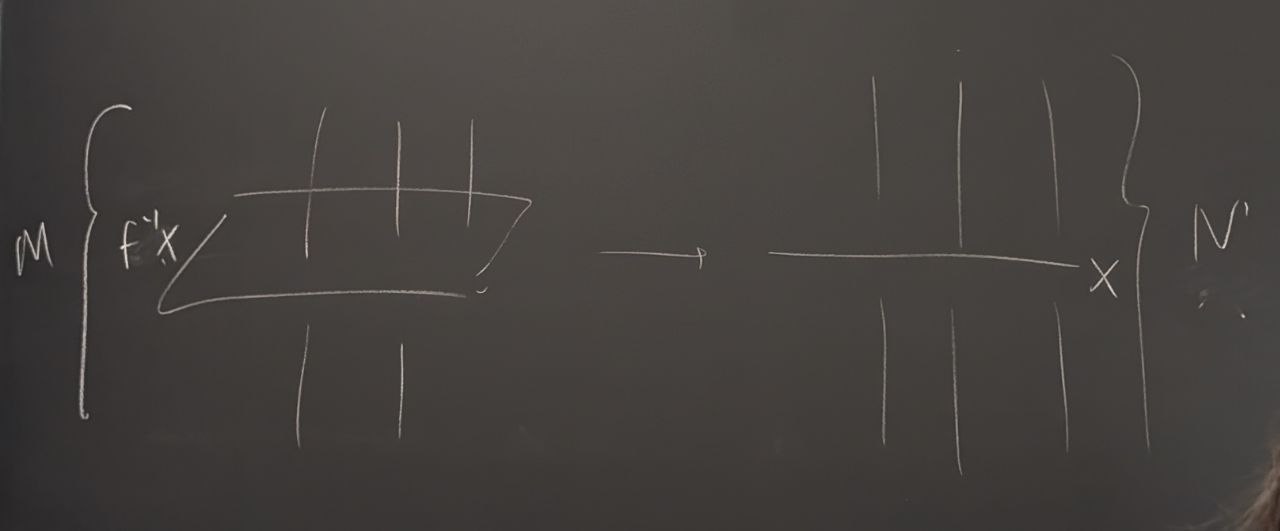 M
f⁻¹X
X
N